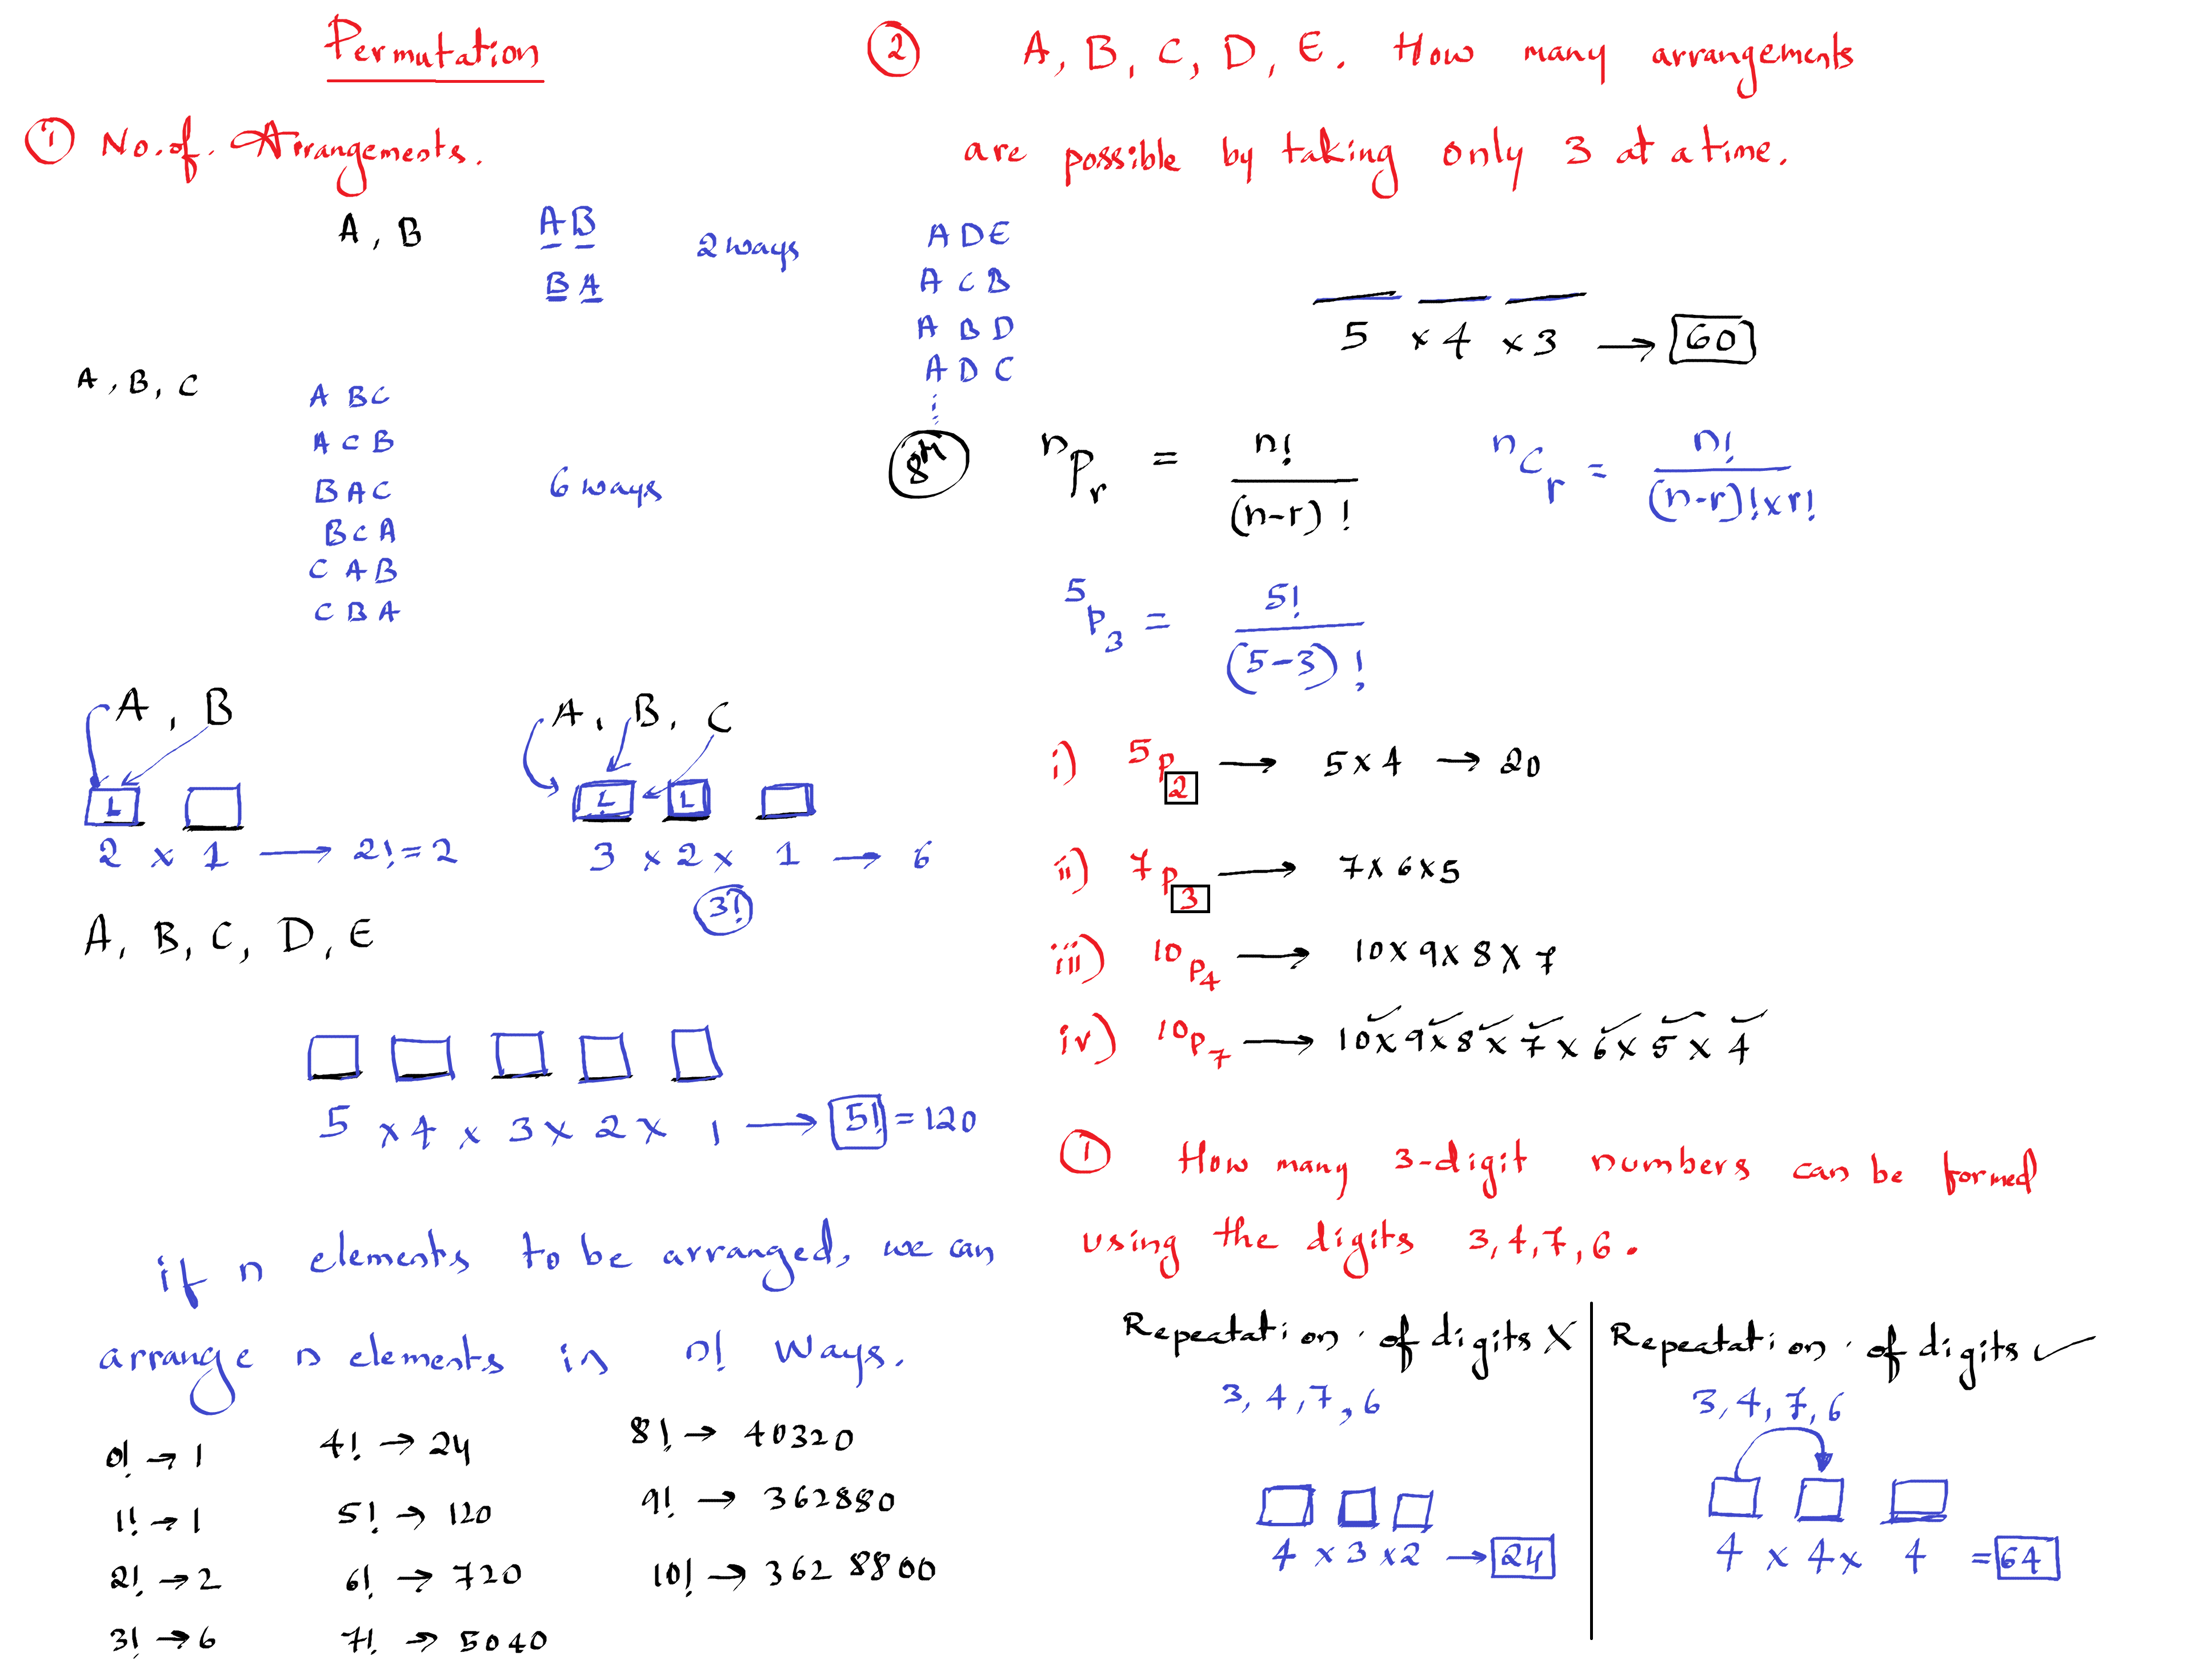 Permutation
① No. of. Arrangements.
A, B
AB
BA
2 ways
A, B, C
ABC
ACB
BAC
BCA
CAB
CBA
6 ways
A, B
L
2 x 1 → 2! = 2
A, B, C
L L
3 x 2 x 1 → 6
3!
A, B, C, D, E
5 x 4 x 3 x 2 x 1 → 5! = 120
if n elements to be arranged, we can
arrange n elements in n! ways.
0! → 1
1! → 1
2! → 2
3! → 6
4! → 24
5! → 120
6! → 720
7! → 5040
8! → 40320
9! → 362880
10! → 362 8800
② A, B, C, D, E. How many arrangements
are possible by taking only 3 at a time.
ADE
ACB
ABD
ADC
⋮
5 x 4 x 3 → 60
ⁿPᵣ = n! / (n-r)!
ⁿCᵣ = n! / (n-r)! x r!
⁵P₃ = 5! / (5-3)!
i) ⁵P₂ → 5x4 → 20
ii) ⁷P₃ → 7x6x5
iii) ¹⁰P₄ → 10x9x8x7
iv) ¹⁰P₇ → 10x9x8x7x6x5x4
① How many 3-digit numbers can be formed
using the digits 3,4,7,6.
Repeatation. of digits X
3,4,7,6
4 x 3 x 2 → 24
Repeatation. of digits ✓
3,4,7,6
4 x 4 x 4 = 64